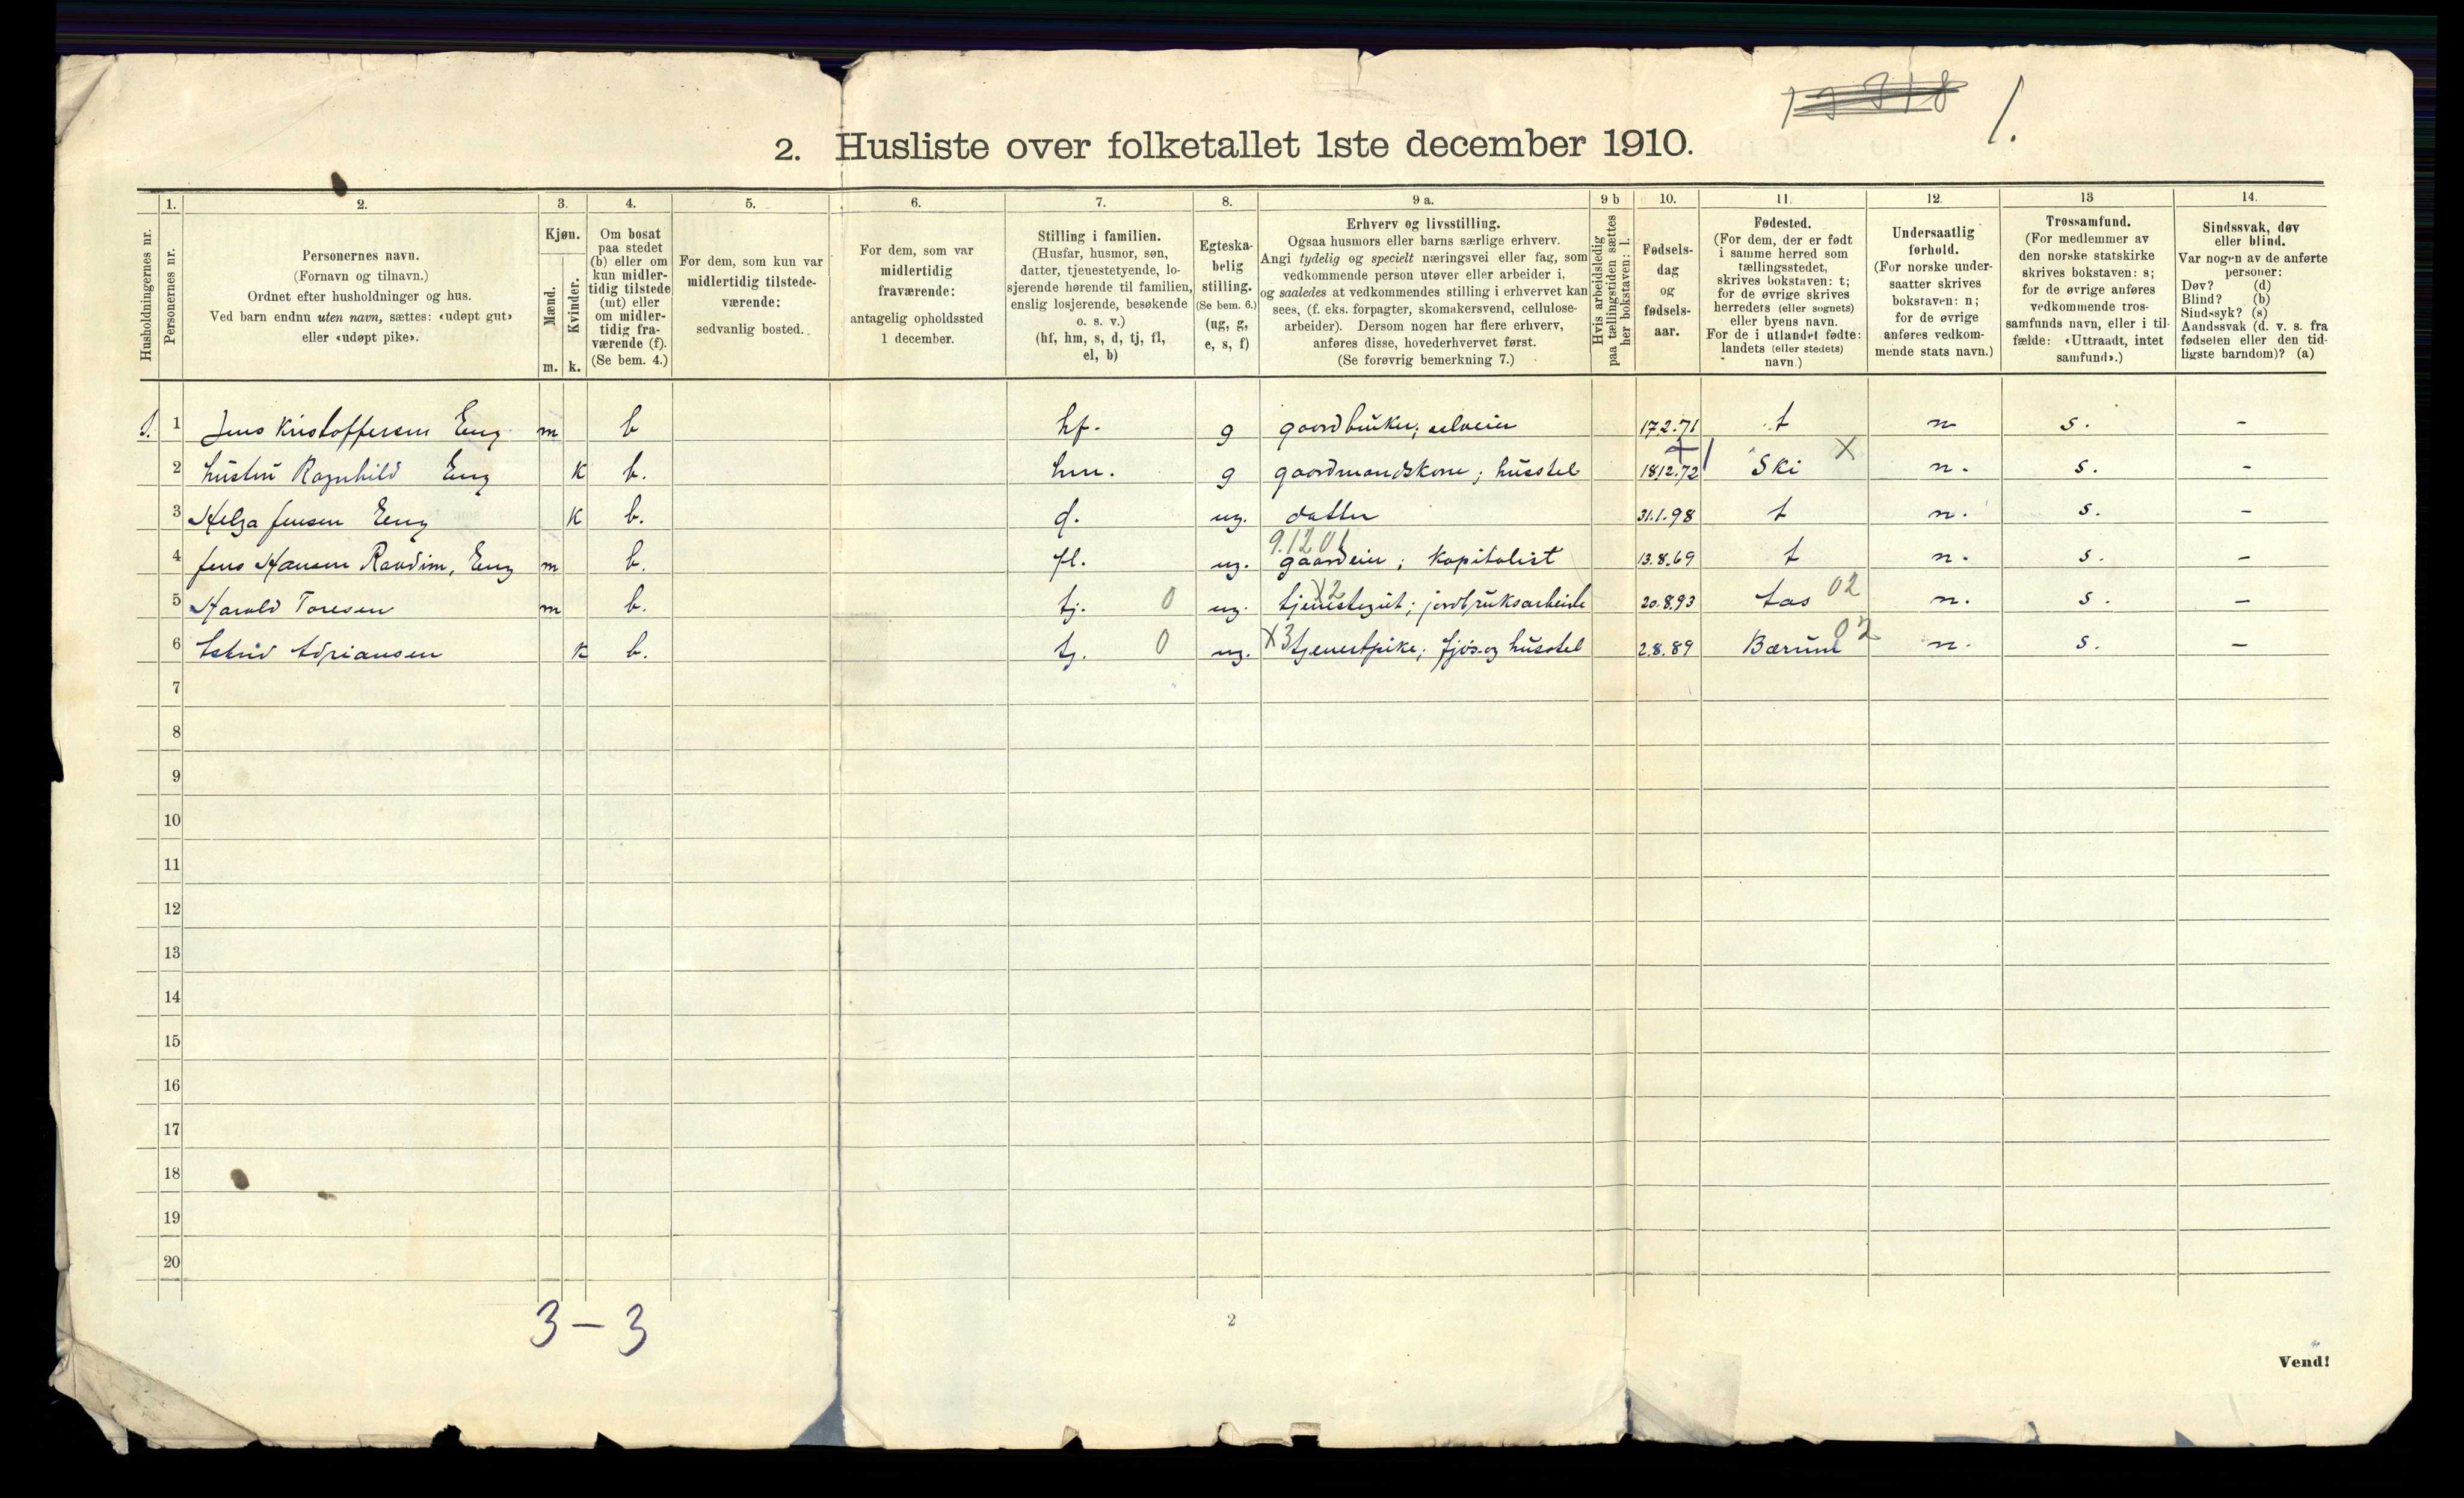 1.
2. Husliste over folketallet 1ste december 1910.
Husholdningernes nr.
1.
Personernes nr.
2.
Personernes navn.
(Fornavn og tilnavn.)
Ordnet efter husholdninger og hus.
Ved barn endnu uten navn, sættes: «udøpt gut»
eller «udøpt pike».
3.
Kjøn.
Mænd.
Kvinder.
m. k.
4.
Om bosat
paa stedet
(b) eller om
kun midler-
tidig tilstede
(mt) eller
om midler-
tidig fra-
værende (f).
(Se bem. 4.)
5.
For dem, som kun var
midlertidig tilstede-
værende:
sedvanlig bosted.
6.
For dem, som var
midlertidig
fraværende:
antagelig opholdssted
1 december.
7.
Stilling i familien.
(Husfar, husmor, søn,
datter, tjenestetyende, lo-
sjerende hørende til familien,
enslig losjerende, besøkende
o. s. v.)
(hf, hm, s, d, tj, fl,
el, b)
8.
Egteska-
belig
stilling.
(Se bem. 6.)
(ug, g,
e, s, f)
9 a.
Erhverv og livsstilling.
Ogsaa husmors eller barns særlige erhverv.
Angi tydelig og specielt næringsvei eller fag, som
vedkommende person utøver eller arbeider i,
og saaledes at vedkommendes stilling i erhvervet kan
sees, (f. eks. forpagter, skomakersvend, cellulose-
arbeider). Dersom nogen har flere erhverv,
anføres disse, hovederhvervet først.
(Se forøvrig bemerkning 7.)
9 b
Hvis arbeidsledig
paa tællingstiden sættes
her bokstaven: l.
10.
Fødsels-
dag
og
fødsels-
aar.
11.
Fødested.
(For dem, der er født
i samme herred som
tællingsstedet,
skrives bokstaven: t;
for de øvrige skrives
herreders (eller sognets)
eller byens navn.
For de i utlandet fødte:
landets (eller stedets)
navn.)
12.
Undersaatlig
forhold.
(For norske under-
saatter skrives
bokstaven: n;
for de øvrige
anføres vedkom-
mende stats navn.)
13
Trossamfund.
(For medlemmer av
den norske statskirke
skrives bokstaven: s;
for de øvrige anføres
vedkommende tros-
samfunds navn, eller i til-
fælde: «Uttraadt, intet
samfund».)
14.
Sindssvak, døv
eller blind.
Var nogen av de anførte
personer:
Døv? (d)
Blind? (b)
Sindssyk? (s)
Aandssvak (d. v. s. fra
fødselen eller den tid-
ligste barndom)? (a)
1. 1 Jens Kristoffersen Eng m b hf. g gaardbruker; selveier 17.2.71 t n s. -
2 hustru Ragnhild Eng k b. hm. g gaardmandskone; husstel 18.12.72 +1 Ski X n. s. -
3 Helga Jensen Eng k b. d. ug. datter 31.1.98 t n. s. -
9.12 01
4 Jens Hansen Eng m b. fl. ug. gaardeier; kapitalist 13.8.69 t n. s. -
5 Harald Toresen m b. tj. 0 ug. X2 tjenestegut; jordbruksarbeide 20.8.93 02 n. s. -
6 Astrid Adriansen k b. tj. 0 ug. X3 tjenestpike; fjøs- og husstel 2.8.89 Bærum 02 n. s. -
7
8
9
10
11
12
13
14
15
16
17
18
19
20
3 - 3
2
Vend!